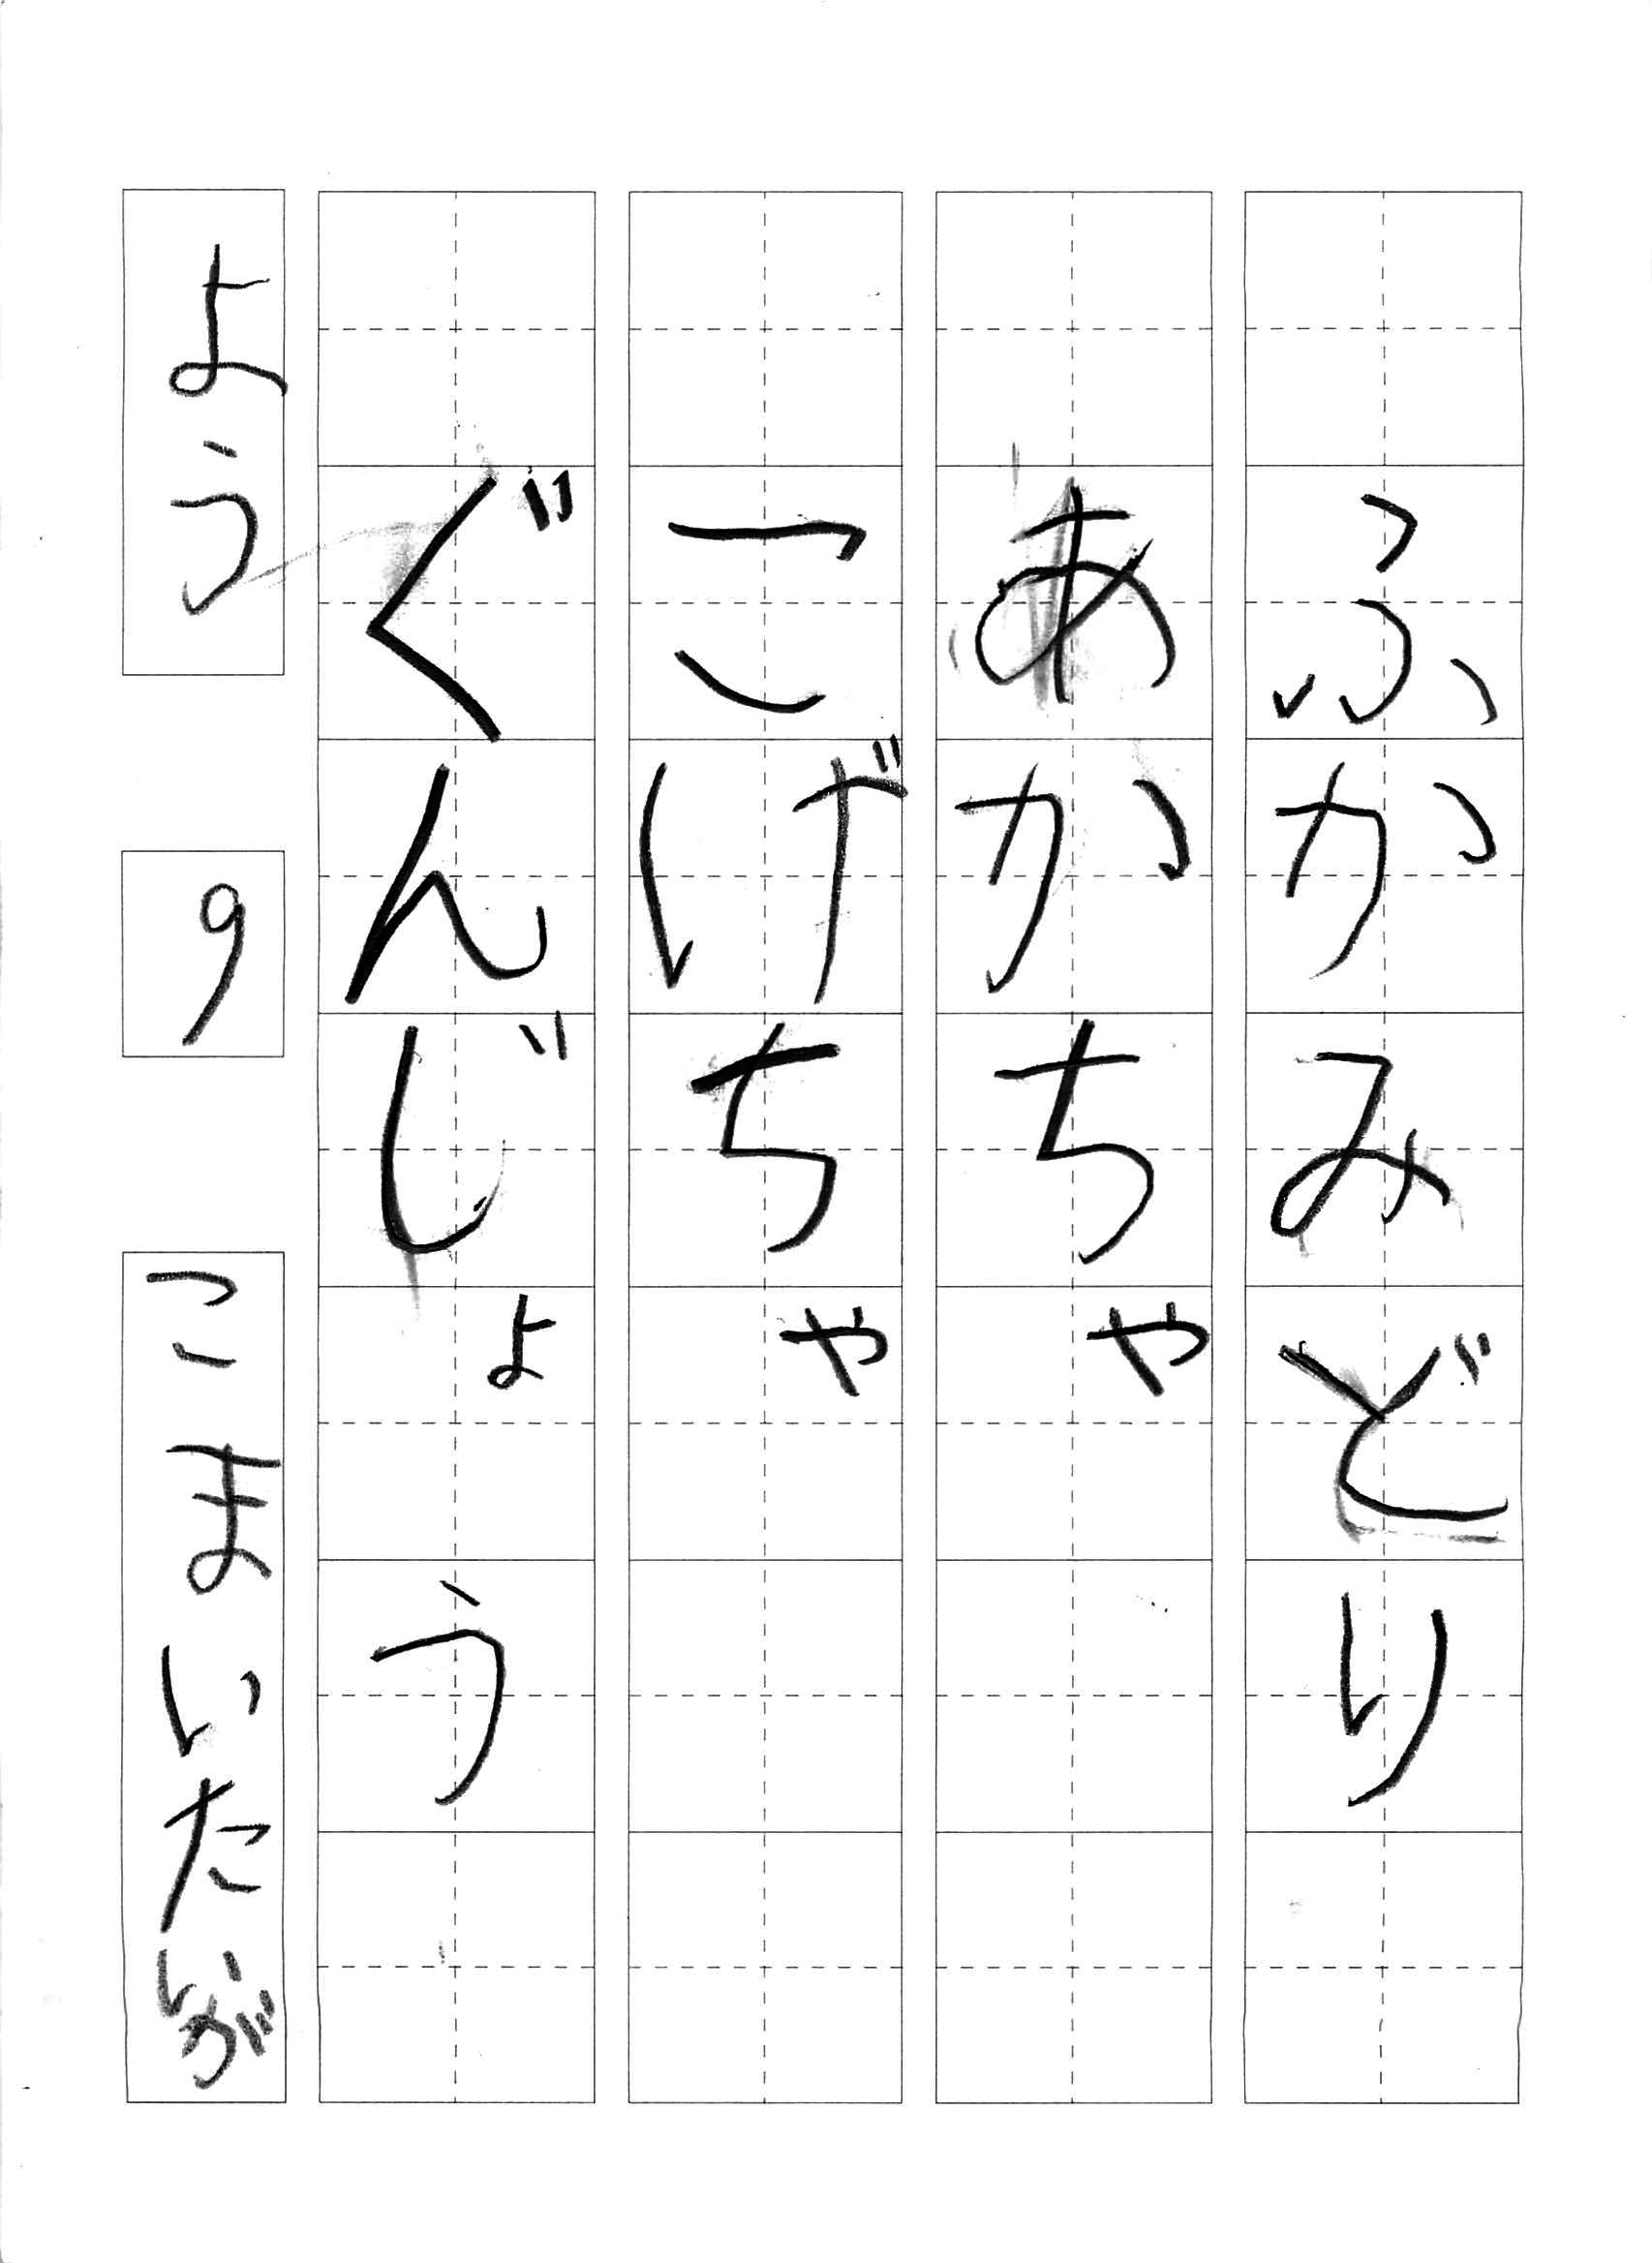 ふかみどり
あかちゃ
こげちゃ
ぐんじょう
よう
9
こまいたいが